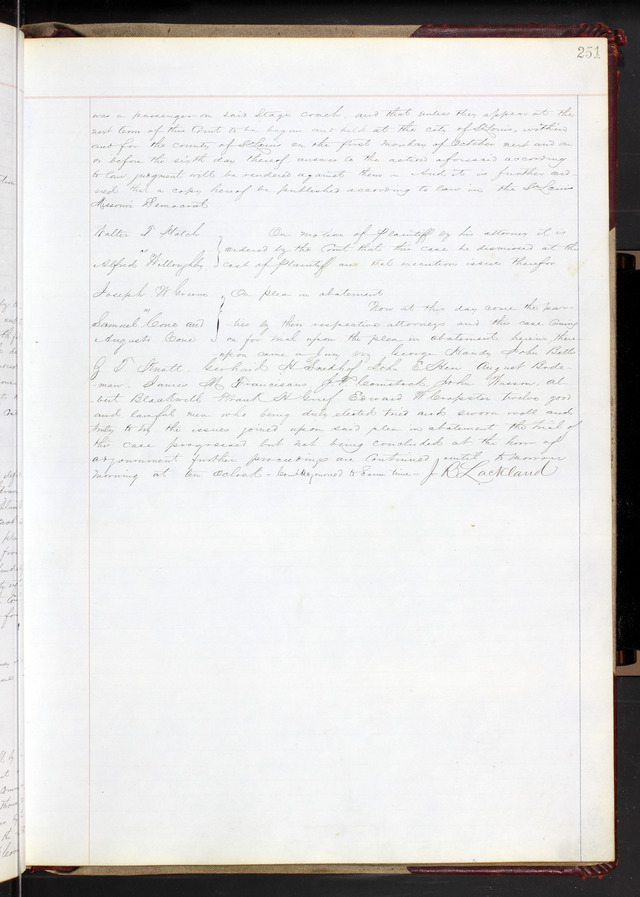 251
was a passenger on said Stage coach, and that unless they appear at the
next term of this Court to be begun and held at the city of St Louis, within
and for the county of St Louis on the first Monday of October next and on
or before the sixth day thereof answer to the action aforesaid according
to law, judgment will be rendered against them – And it is further or
dered that a copy hereof be published according to law in the St Louis
Missouri Democrat
Walter T Hatch
vs
Alfred Willoughby
On motion of Plaintiff by his attorney it is
ordered by the Court that this case be dismissed at the
cost of Plaintiff and that execution issue therefor
Joseph W
vs
Samuel Cone and
Augusta Cone
On plea in abatement
Now at this day come the par
ties by their respective attorneys and this case coming
on for trial upon the plea in abatement herein there
upon came a Jury viz George Handy John Betts
G T Knott, Gerhard H John August Bode
man, James M Franciscus, J Comstock John Wasson, Al
bert Blackwell Frank H Edward W twelve good
and lawful men who being duly elected tried and sworn well and
truly to try the issues joined upon said plea in abatement the trial of
this case progressed but not being concluded at the hour of
adjournment further proceedings are Continued until to morrow
morning at ten oclock – Court Adjourned to Same time – J R Lackland